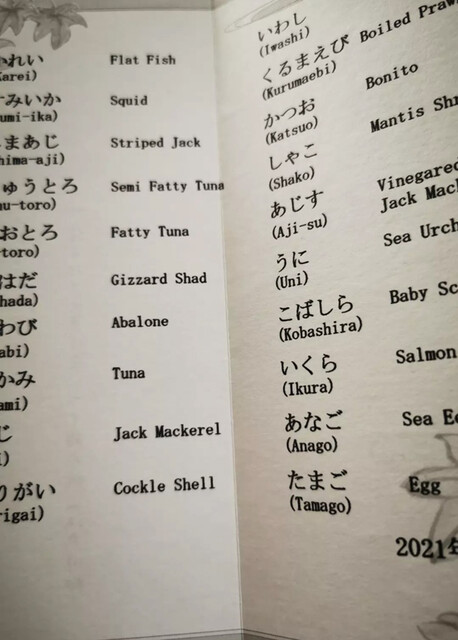 かれい Flat Fish
Karei)
すみいか Squid
umi-ika)
まあじ Striped Jack
hima-aji)
ゅうとろ Semi Fatty Tuna
u-toro)
おとろ Fatty Tuna
toro)
はだ Gizzard Shad
hada)
わび Abalone
abi)
かみ Tuna
ami)
じ Jack Mackerel
i)
りがい Cockle Shell
rigai)
いわし
(Iwashi)
くるまえび Boiled Praw
(Kurumaebi)
かつお Bonito
(Katsuo)
しゃこ Mantis Shr
(Shako)
あじす Vinegared
(Aji-su) Jack Mac
うに Sea Urch
(Uni)
こばしら Baby Sc
(Kobashira)
いくら Salmon
(Ikura)
あなご Sea Ee
(Anago)
たまご Egg
(Tamago)
2021年